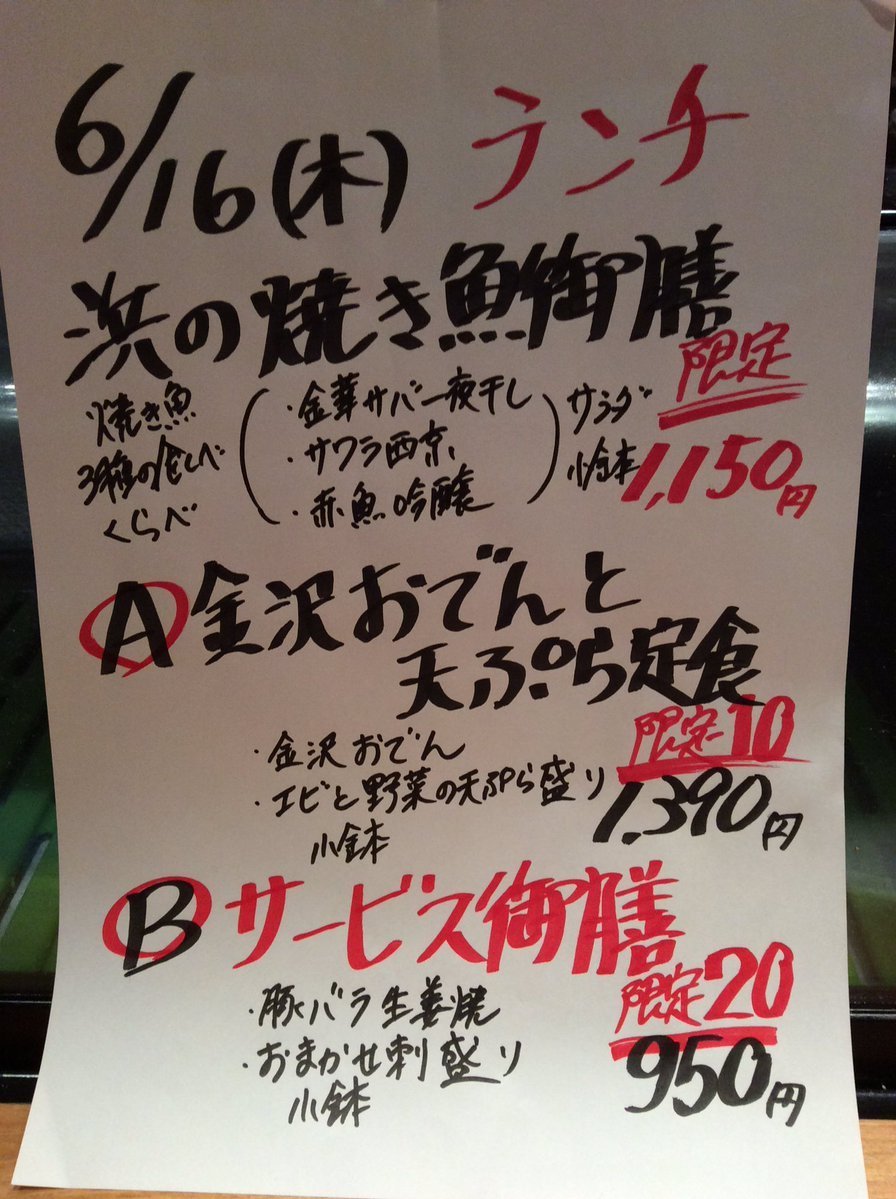 6/16(木) ランチ
浜の焼き魚御膳
限定
焼き魚
3種の食べ
くらべ
・金華サバ一夜干し
・サワラ西京
・赤魚吟醸
サラダ
小鉢
1,150円
A 金沢おでんと
天ぷら定食
限定10
・金沢おでん
・エビと野菜の天ぷら盛り
小鉢
1,390円
B サービス御膳
限定20
・豚バラ生姜焼
・おまかせ刺盛り
小鉢
950円